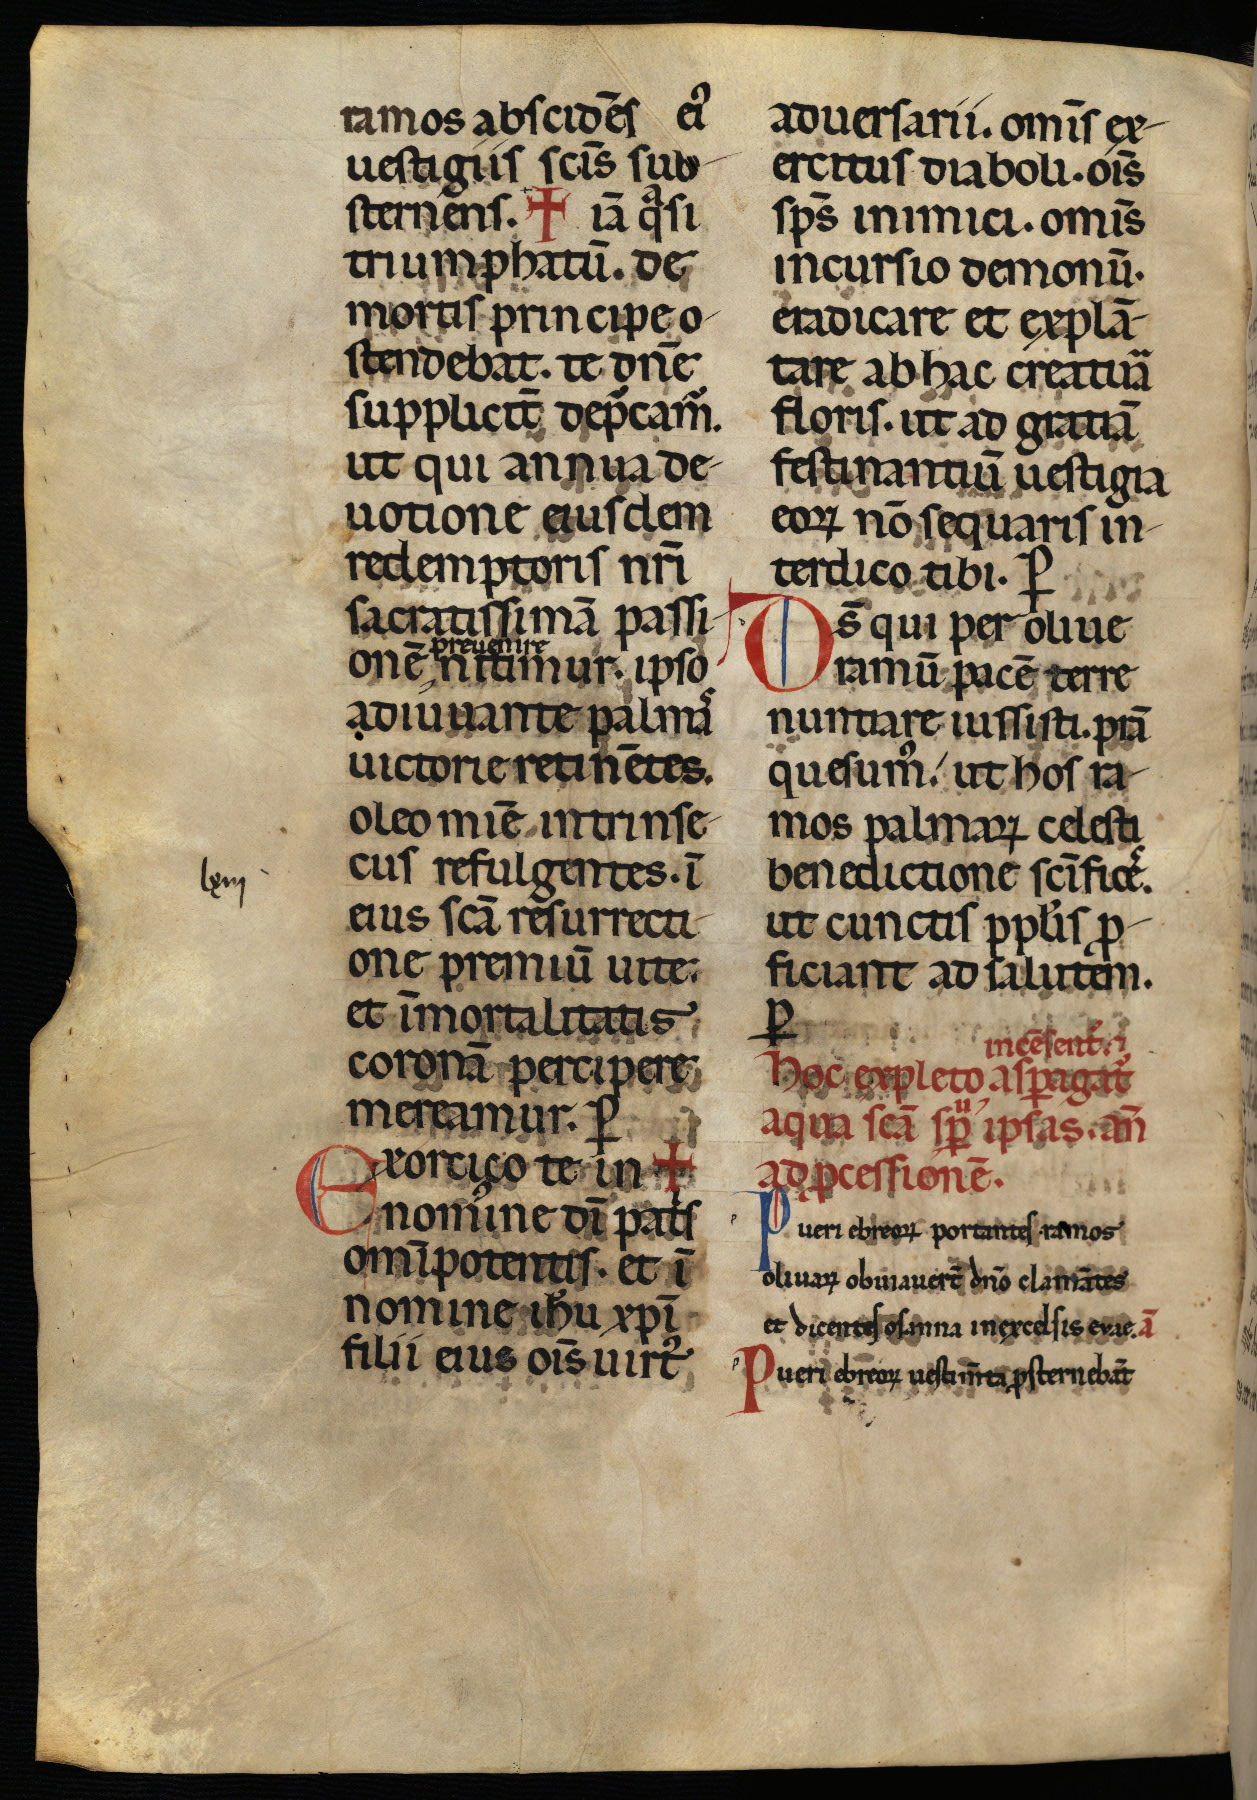 ramos abscidēs ei᾽
uestigiis scīs sub-
sternens. ✝ iā qᵃsi
triumphatū. de
mortis principe o-
stendebat. te dn̄e
supplicit̄ dep̄cam᾽.
ut qui annua de-
uotione eiusdem
redemptoris nr̄i
sacratissimā passi-
onē prevenire nitimur. ipso
adiuuante palmaˢ
uictorie retinētes.
oleo mīe intrinse-
cus refulgentes. ī
lxiii
eius scā resurrecti-
one premiū uite.
et īmortalitatis
coronā percipere
mereamur. P̲
Exorcizo te in ✝
nomine dī pat̄s
omīpotentis. et ī
nomine ih̄u xp̄i
filii eius oīs uirt᾽
aduersarii. omīs ex-
ercitus diaboli. oīs
sp̄s inimici. omīs
incursio demonū.
eradicare et explā-
tare ab hac creatuᵃ
floris. ut ad gratiā
festinantiū uestigia
eoꝝ nō sequaris in-
terdico tibi. P̲
Ds̄ qui per oliue
ramū pacē terre
nuntiare iussisti. prā
quesum᾽. ut hos ra-
mos palmaꝝ celesti
benedictione scīficeˢ.
ut cunctis ppl̄is ꝓ-
ficiant ad salutem.
P̲
incēsent᾽ ⁊
hoc expleto asꝑagat᾽
aqua scā suꝑ ipsas. an̄
ad ꝓcessionē.
Pueri ebreoꝝ portantes ramos
oliuaꝝ obuiauer̄t dn̄o clamātes
et dicentes osanna in excelsis evae. ā
Pueri ebreoꝝ uestim̄ta ꝓsternebāt